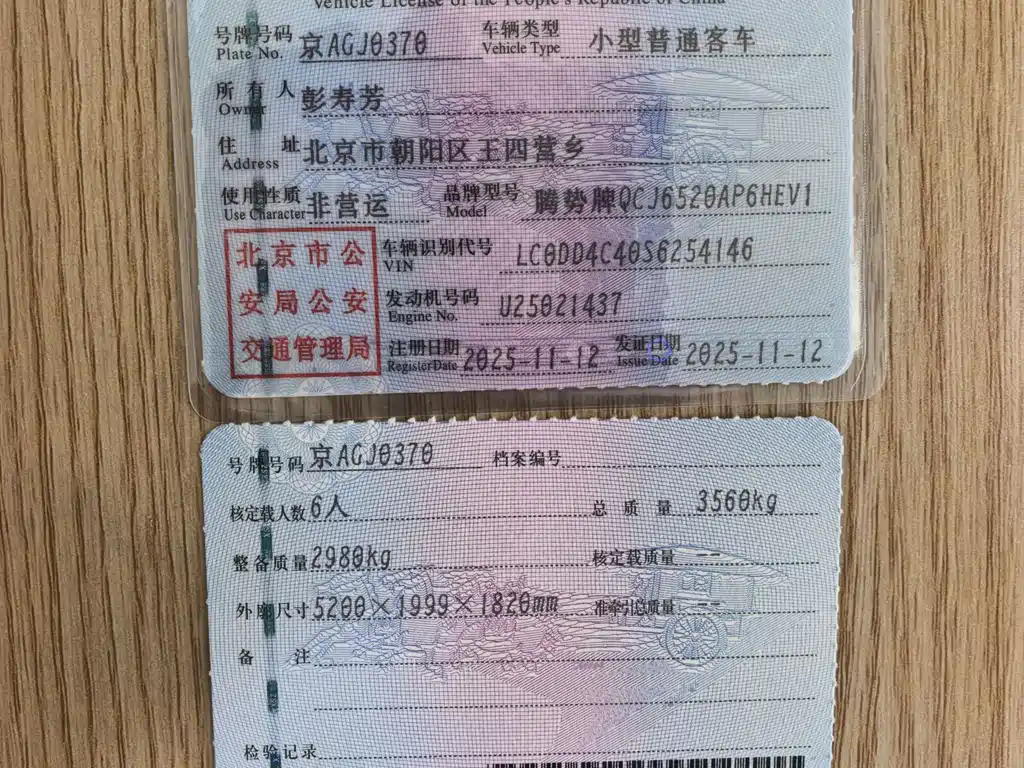 Vehicle License of the People's Republic of China
号牌号码 京AGJ0370 车辆类型 小型普通客车
Plate No. Vehicle Type
所有人 彭寿芳
Owner
住址 北京市朝阳区王四营乡
Address
使用性质 非营运 品牌型号 腾势牌QCJ6520AP6HEV1
Use Character Model
北京市公
安局公安
交通管理局
车辆识别代号 LC0DD4C40S6254146
VIN
发动机号码 U25021437
Engine No.
注册日期 2025-11-12 发证日期 2025-11-12
Register Date Issue Date
号牌号码 京AGJ0370 档案编号
核定载人数 6人 总质量 3560kg
整备质量 2980kg 核定载质量 --
外廓尺寸 5200×1999×1820mm 准牵引总质量 --
备注
检验记录